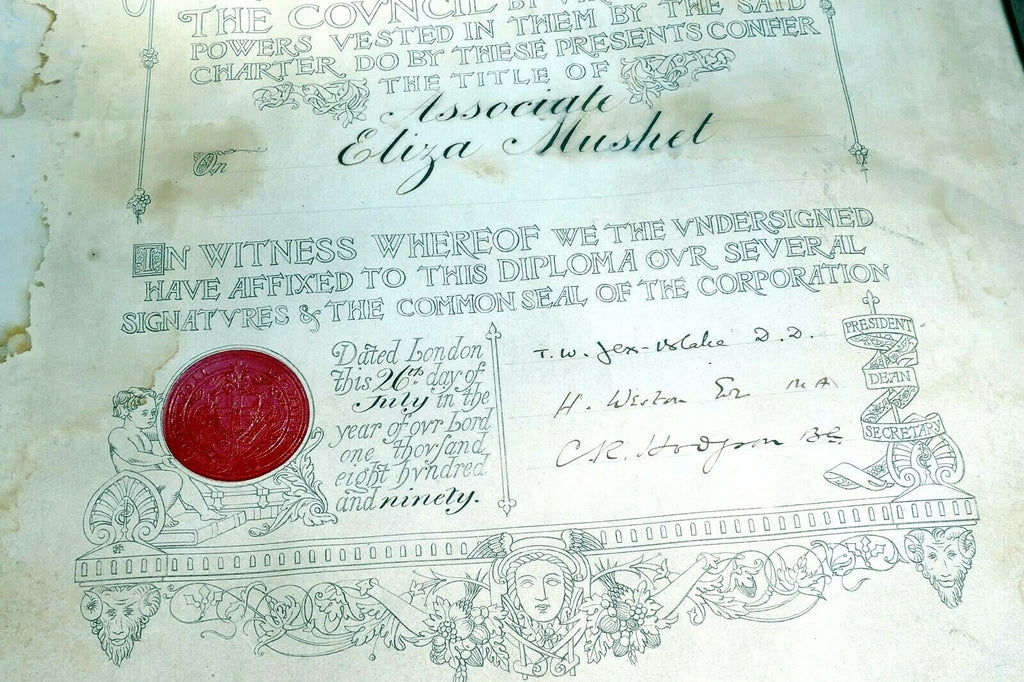 THE COVNCIL BY
POWERS VESTED IN THEM BY THE SAID
CHARTER DO BY THESE PRESENTS CONFER
THE TITLE OF
Associate
On Eliza Mushet
IN WITNESS WHEREOF WE THE VNDERSIGNED
HAVE AFFIXED TO THIS DIPLOMA OVR SEVERAL
SIGNATVRES & THE COMMON SEAL OF THE CORPORATION
Dated London
this 26th day of
July in the
year of ovr Lord
one thovsand
eight hvndred
and ninety.
T. W. Jex-Blake D.D.
H. Weston M A
C. R. Hodgson
PRESIDENT
DEAN
SECRETARY